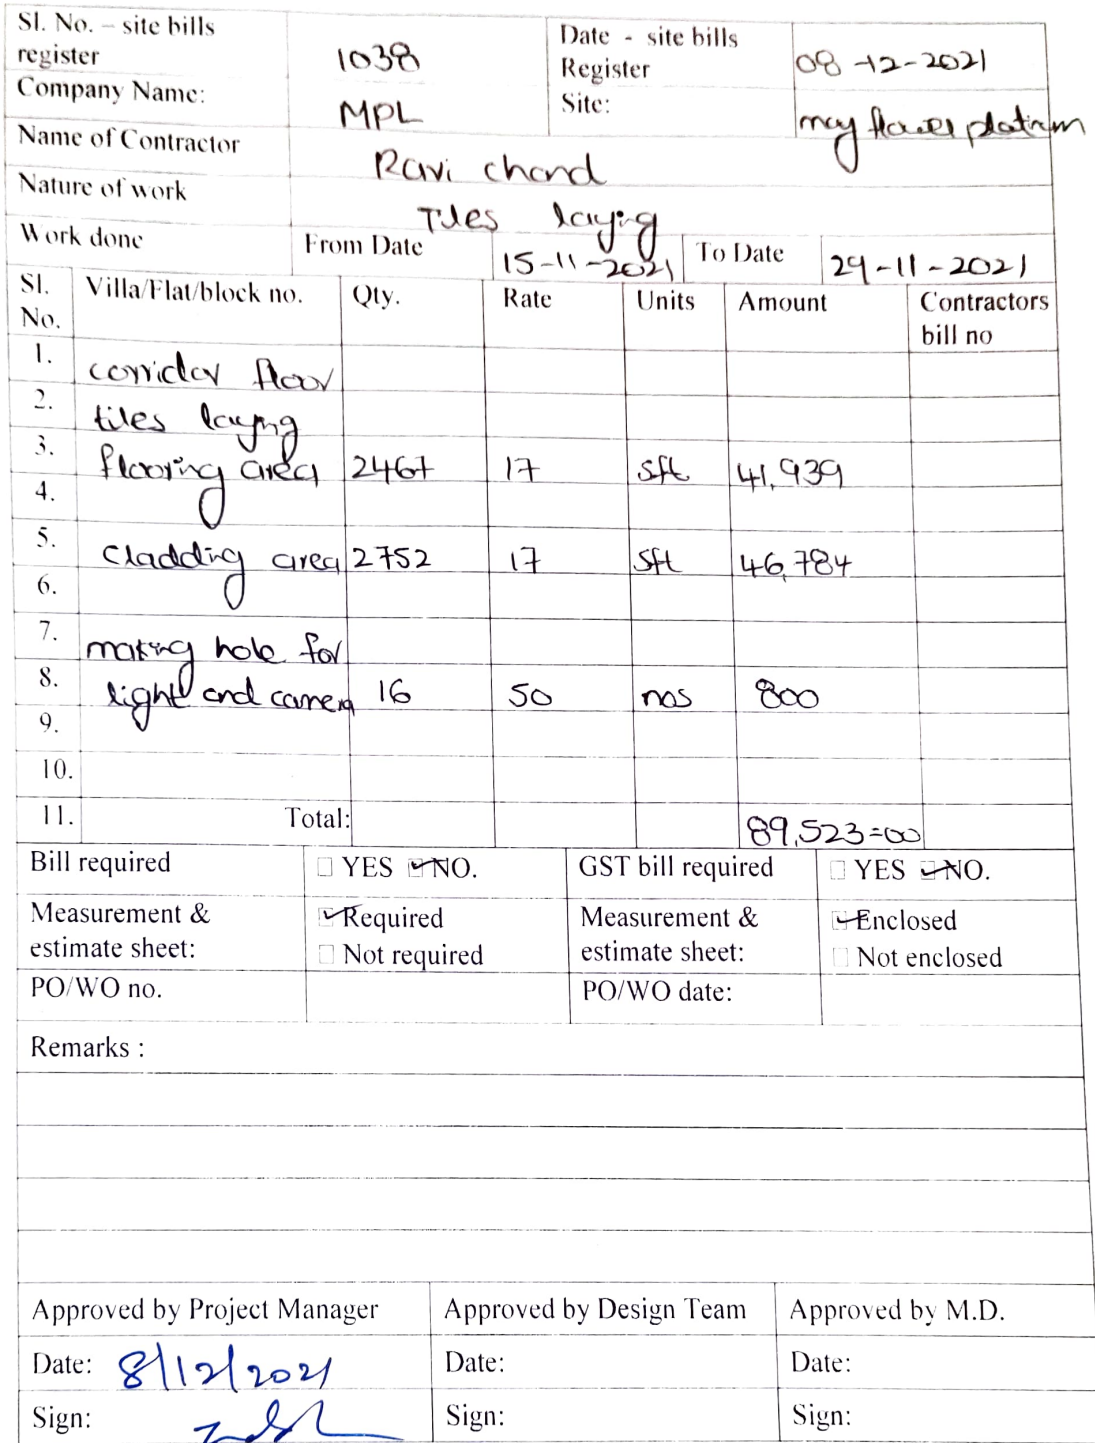 Sl. No. – site bills register 1038 Date - site bills Register 08-12-2021
Company Name: MPL Site: may flower platinum
Name of Contractor Ravi chand
Nature of work Tiles laying
Work done From Date 15-11-2021 To Date 29-11-2021
Sl. No. Villa/Flat/block no. Qty. Rate Units Amount Contractors bill no
1. corridor floor
2. tiles laying
3. flooring area 2467 17 sft 41,939
4.
5. Cladding area 2752 17 sft 46,784
6.
7. making hole for
8. light and camera 16 50 nos 800
9.
10.
11. Total: 89,523=00
Bill required ☐ YES ☑ NO. GST bill required ☐ YES ☑ NO.
Measurement & estimate sheet: ☑ Required ☐ Not required Measurement & estimate sheet: ☑ Enclosed ☐ Not enclosed
PO/WO no. PO/WO date:
Remarks :
Approved by Project Manager Approved by Design Team Approved by M.D.
Date: 8/12/2021 Date: Date:
Sign: Sign: Sign: